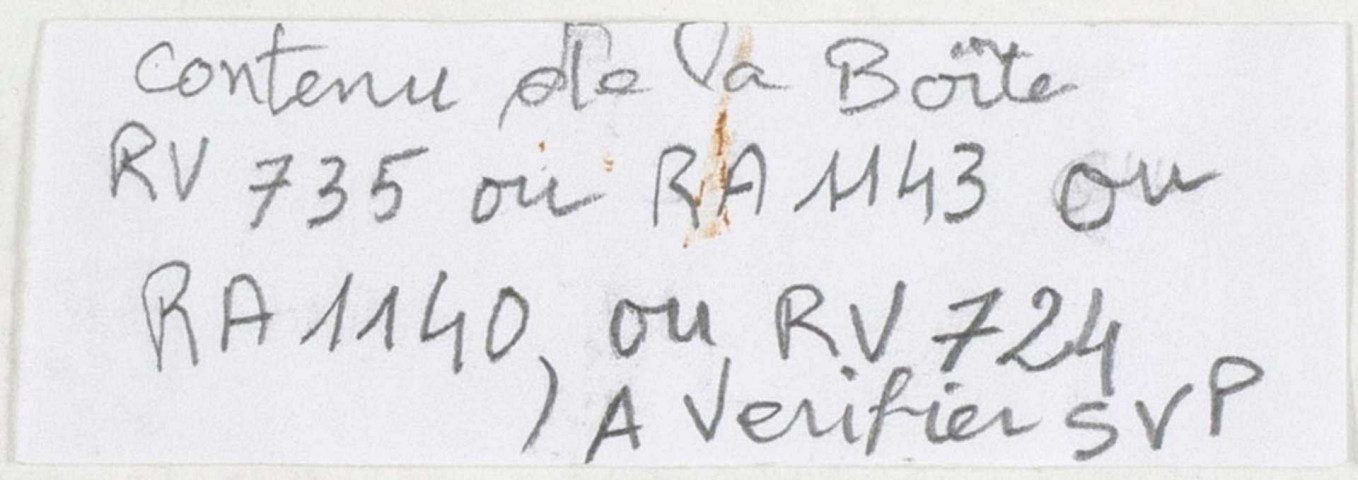 Contenu de la Boîte
RV 735 ou RA 1143 ou
RA 1140, ou RV 724
) A Verifier SVP